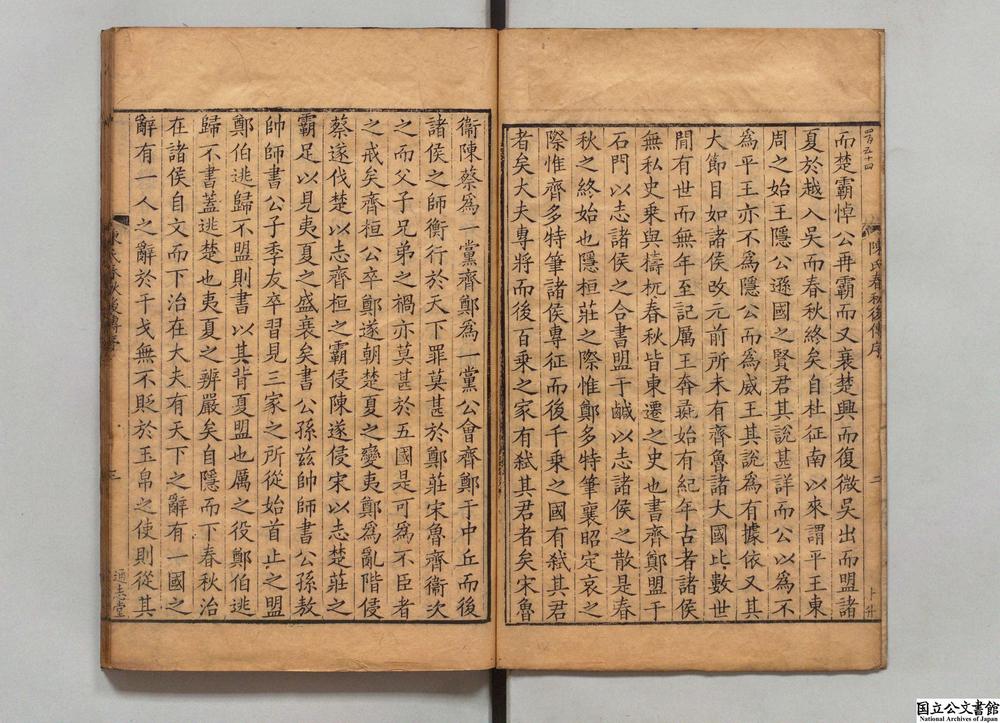 陳氏春秋後傳序 二 卜升
而楚霸悼公再霸而又衰楚興而復微吳出而盟諸
夏於越入吳而春秋終矣自杜征南以來謂平王東
周之始王隱公遜國之賢君其說甚詳而公以為不
為平王亦不為隱公而為威王其說為有據依又其
大節目如諸侯改元前所未有齊魯諸大國比數世
間有世而無年至記厲王奔彘始有紀年古者諸侯
無私史乗與檮杌春秋皆東遷之史也書齊鄭盟于
石門以志諸侯之合書盟于鹹以志諸侯之散是春
秋之終始也隱桓莊之際惟鄭多特筆襄昭定哀之
際惟齊多特筆諸侯專征而後千乗之國有弒其君
者矣大夫專將而後百乗之家有弒其君者矣宋魯
衞陳蔡爲一黨齊鄭爲一黨公會齊鄭于中丘而後
諸侯之師衡行於天下罪莫甚於鄭莊宋魯齊衞次
之而父子兄弟之禍亦莫甚於五國是可爲不臣者
之戒矣齊桓公卒鄭遂朝楚夏之變夷鄭爲亂階侵
蔡遂伐楚以志齊桓之霸侵陳遂侵宋以志楚莊之
霸足以見夷夏之盛衰矣書公孫兹帥師書公孫敖
帥師書公子季友卒習見三家之所從始首止之盟
鄭伯逃歸不盟則書以其背夏盟也厲之役鄭伯逃
歸不書蓋逃楚也夷夏之辨嚴矣自隱而下春秋治
在諸侯自文而下治在大夫有天下之辭有一國之
辭有一人之辭於干戈無不貶於玉帛之使則從其
陳氏春秋後傳序 三 通志堂
国立公文書館
National Archives of Japan